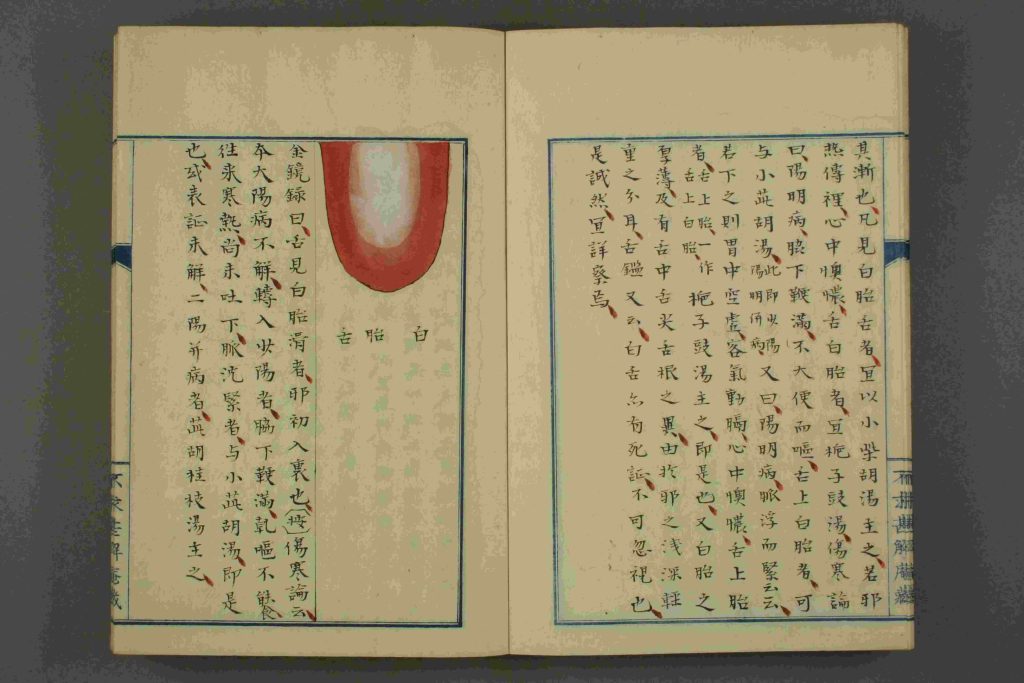 其漸也凡見白胎舌者宜以小柴胡湯主之若邪
熱傳裡心中懊憹舌白胎者宜梔子豉湯傷寒論
曰陽明病脇下鞕滿不大便而嘔舌上白胎者可
与小茈胡湯此即少陽陽明併病又曰陽明病脈浮而緊云云
若下之則胃中空虛客氣動膈心中懊憹舌上胎
者舌上胎一作舌上白胎梔子豉湯主之即是也又白胎之
厚薄及有舌中舌尖舌根之異由於邪之淺深輕
重之分耳舌鑑又云白舌亦有死証不可忽視也
是誠然宜詳察焉
白胎舌
金鏡錄曰舌見白胎滑者邪初入裏也按傷寒論云
本太陽病不解轉入少陽者脇下鞕滿乾嘔不能食
往來寒熱尚未吐下脈沈緊者与小茈胡湯即是
也或表証未解二陽并病者茈胡桂枝湯主之